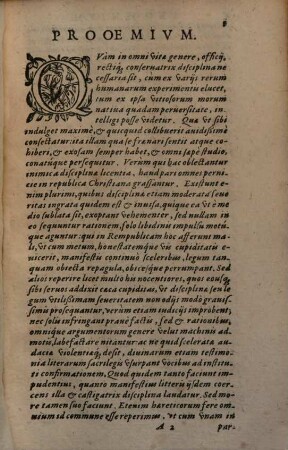 PROOEMIVM.
QVam in omni vitæ genere, officij,
rectiq́; conseruatrix disciplina ne
cessaria sit, cum ex varijs rerum
humanarum experimentis elucet,
tum ex ipsa vitiosorum morum
natiua quadam peruersitate, in-
telligi posse videtur. Qua vt sibi
indulget maximè, & quicquid collibuerit auidissimè
consectatur: ita illam quæ se frænare sentit atque co-
hiberi, & exosam semper habet, & omni sæpè studio,
conatuque persequitur. Verum quæ hæc oblectantur
animis disciplinæ licentia, haud pars omni perni-
ciose in republica Christiana grassantur. Existunt e-
nim plurimi, quibus disciplina etiam moderata seue-
ritas ingrata quidem est & inuisa, quique ea vt è me
dio sublata sit, exoptant vehementer, sed nullam in
eo sequuntur rationem, solo libidinis impulsu motú-
que aguntur: qui in Rempublicam hoc afferunt ma-
li, vt cum metum, honestatemque vis cupiditatis e-
uicerit, manifestis continuò sceleribus, legum tan-
quam obiecta repagula, obijcique perrumpant. Sed
alios reperire licet multo his nocentiores, quos confuse
sibi seruos addixit cæca cupiditas, vt disciplinæ, sen le-
gum vtilissimam seueritatem non odijs modò grauis-
simis prosequantur, verum etiam suadeijs infirment,
nec solùm infringant prauè factis, sed & rationibus,
omnique argumentorum genere velut machinis ad-
motis, labefactare nitantur: ac ne quid scelerata au-
dacia violentiaq́; desit, diuinarum etiam testimo-
nia literarum sacrilegis vsurpent vocibus ad instituti
confirmationem. Quod quidem tanto faciunt im-
pudentius, quanto manifestius litteris ijsdem coer-
cens illa & castigatrix disciplina landatur. Sed mo-
re tamen suo faciunt. Etenim hæreticorum fere om-
nium id commune esse reperimus, vt cum vnam in
A 2 par-